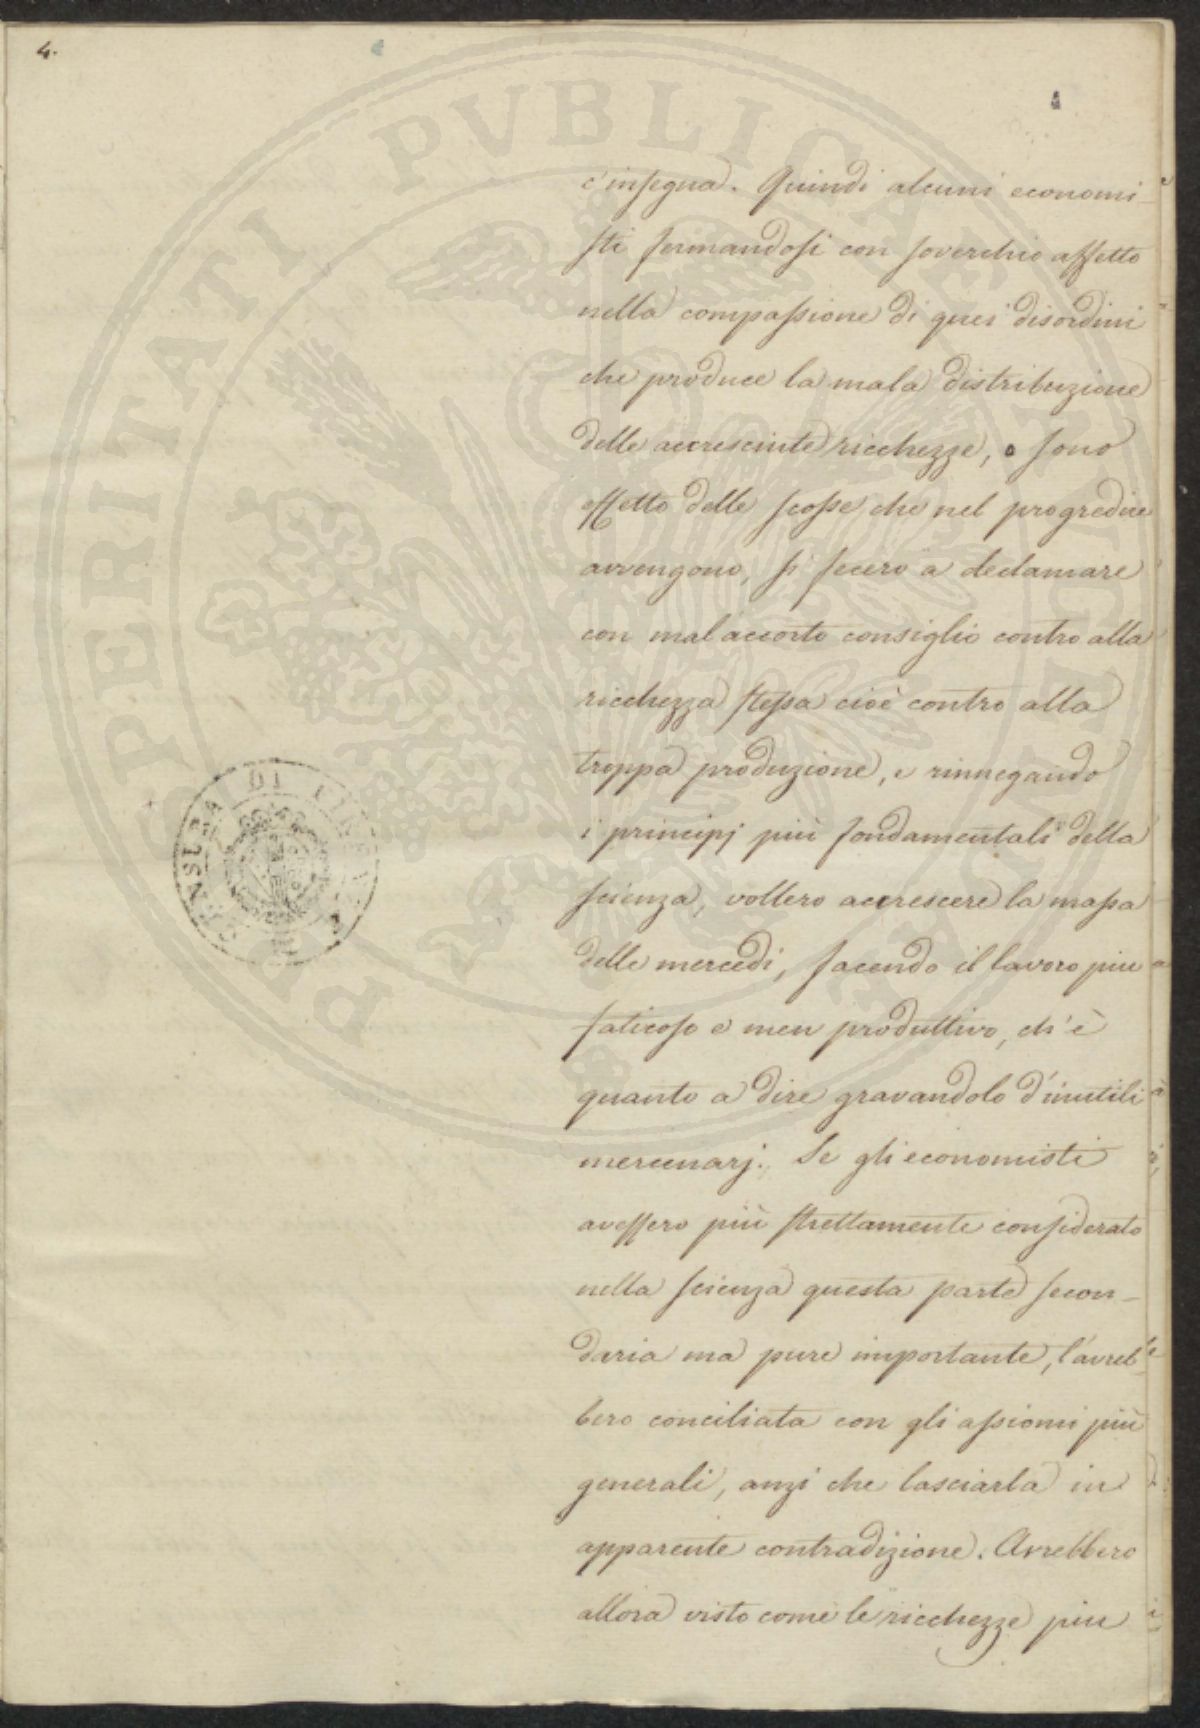 4.
c'insegna. Quindi alcuni economi-
sti fermandosi con soverchio affetto
nella compassione di quei disordini
che produce la mala distribuzione
delle accresciute ricchezze, o sono
effetto delle scosse che nel progredire
avvengono, si fecero a declamare
con mal accorto consiglio contro alla
ricchezza stessa cioè contro alla
troppa produzione, e rinnegando
i principj più fondamentali della
scienza, vollero accrescere la massa
delle mercedi, facendo il lavoro piu
faticoso e men produttivo, ch'è
quanto a dire gravandolo d'inutili
mercenarj. Se gli economisti
avessero più strettamente considerato
nella scienza questa parte secon-
daria ma pure importante, l'avreb-
bero conciliata con gli assiomi più
generali, anzi che lasciarla in
apparente contradizione. Avrebbero
allora visto come le ricchezze piu
PVBLICAE
PERITATI
DI